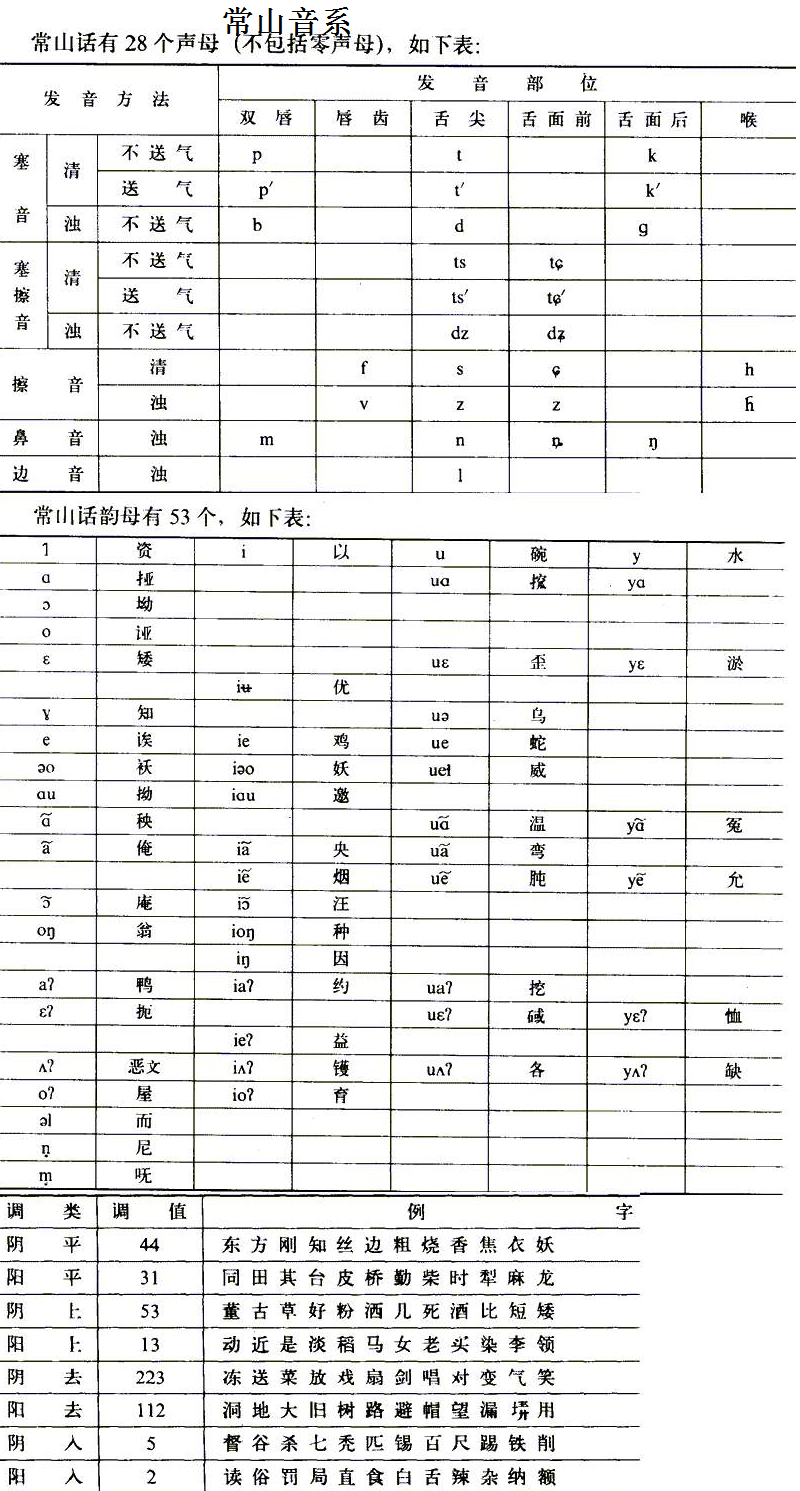 常山音系
常山话有28个声母(不包括零声母)，如下表：
发音方法 发音部位
双唇 唇齿 舌尖 舌面前 舌面后 喉
塞音 清 不送气 p t k
送气 p′ t′ k′
浊 不送气 b d ɡ
塞擦音 清 不送气 ts tɕ
送气 ts′ tɕ′
浊 不送气 dz dʑ
擦音 清 f s ɕ h
浊 v z z ɦ
鼻音 浊 m n ȵ ŋ
边音 浊 l
常山话韵母有53个，如下表：
ɿ 资 i 以 u 碗 y 水
ɑ 挜 uɑ yɑ
ɔ 坳
o 讶
ɛ 矮 uɛ 歪 yɛ 淤
iʉ 优
ɤ 知 uə 乌
e 诶 ie 鸡 ue 蛇
əo 袄 iəo 妖 ueɪ 威
ɑu 拗 iɑu 邀
ɑ̃ 秧 uɑ̃ 温 yɑ̃ 冤
ã 俺 iã 央 uã 弯
iẽ 烟 uẽ 肫 yẽ 允
ɔ̃ 庵 iɔ̃ 汪
oŋ 翁 ioŋ 种
iŋ 因
aʔ 鸭 iaʔ 约 uaʔ 挖
ɛʔ 扼 uɛʔ yɛʔ 恤
ieʔ 益
ʌʔ 恶文 iʌʔ 镬 uʌʔ 各 yʌʔ 缺
oʔ 屋 ioʔ 育
əl 而
ṇ 尼
ṃ 呒
调类 调值 例字
阴平 44 东方刚知丝边粗烧香焦衣妖
阳平 31 同田其台皮桥勤柴时犁麻龙
阴上 53 董古草好粉洒几死酒比短矮
阳上 13 动近是淡稻马女老买染李领
阴去 223 冻送菜放戏扇剑唱对变气笑
阳去 112 洞地大旧树路避帽望漏用
阴入 5 督谷杀七秃匹锡百尺踢铁削
阳入 2 读俗罚局直食白舌辣杂纳额